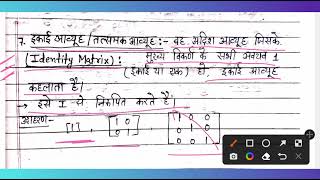 7. इकाई आव्यूह / तत्समक आव्यूह :- वह अदिश आव्यूह जिसके
(Identity Matrix): मुख्य विकर्ण के सभी अवयव 1
(इकाई या एक) हो, इकाई आव्यूह
कहलाता है।
→ इसे I से निरूपित करते हैं।
[1], [1 0
0 1]
[1 0 0
0 1 0
0 0 1]